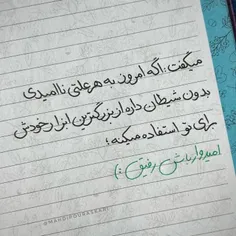 میگفت : اگه امروز به هر علتی ناامیدی
بدون شیطان داره از بزرگترین ابزار خودش
برای تو استفاده میکنه ؛
امیدوار باش رفیق :)